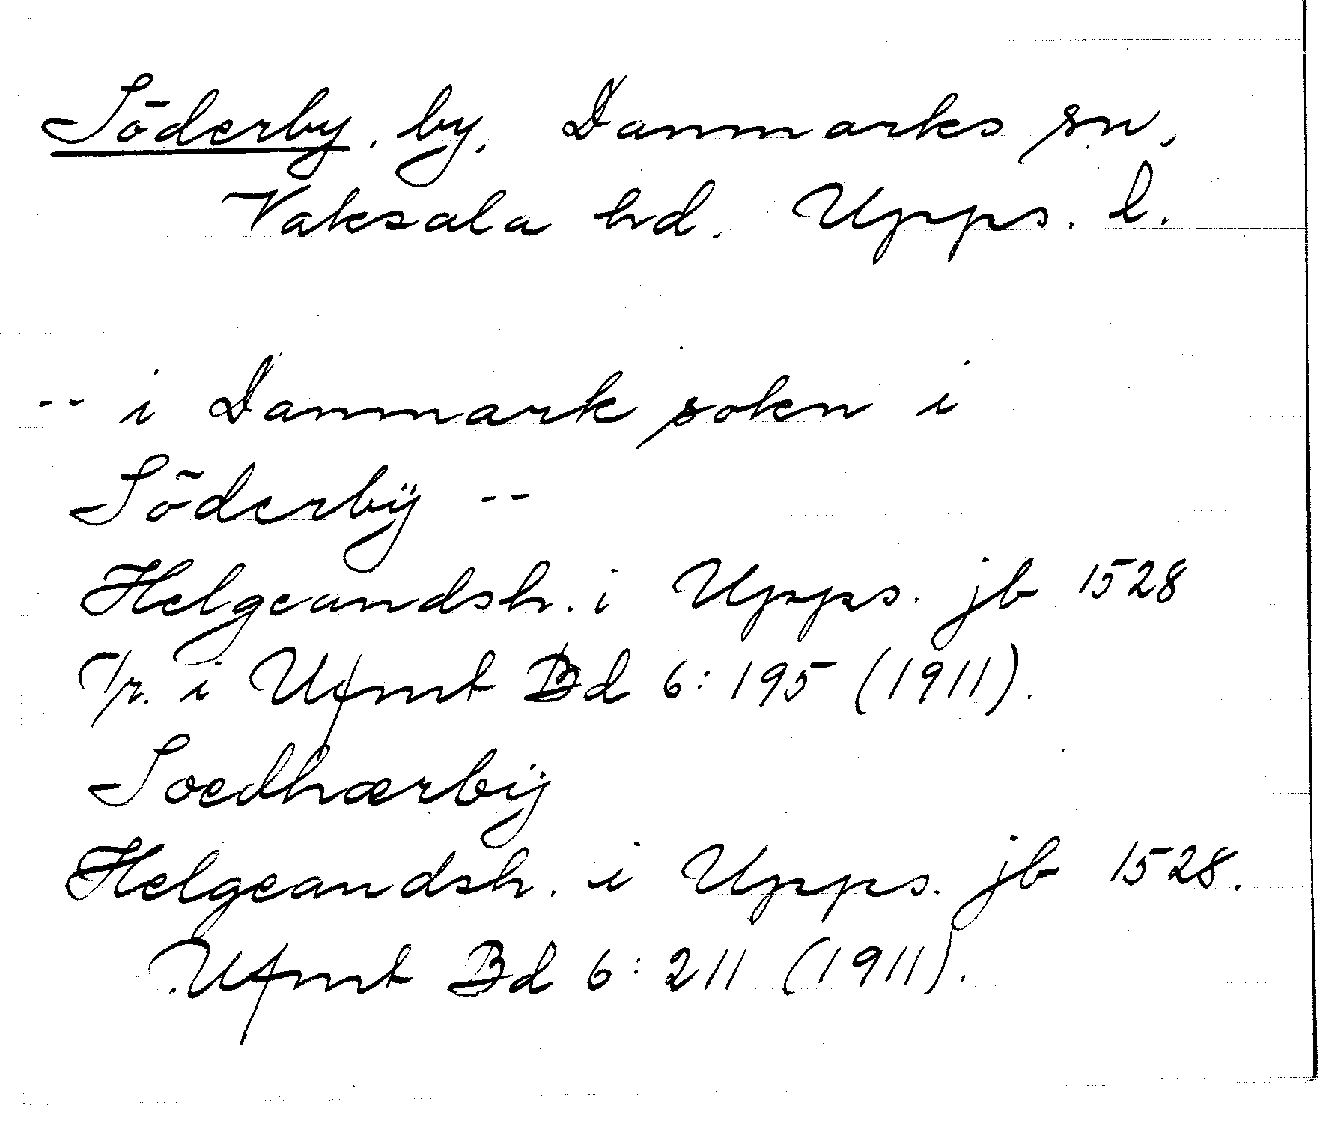 Söderby, by, Danmarks sn,
Vaksala hd. Upps. l.
-- i Danmark sokn i
Söderbÿ --
Helgeandsh. i Upps. jb 1528
Tr. i Ufmt Bd 6:195 (1911).
Soedhærbÿ
Helgeandsh. i Upps. jb 1528.
Ufmt Bd 6:211 (1911).